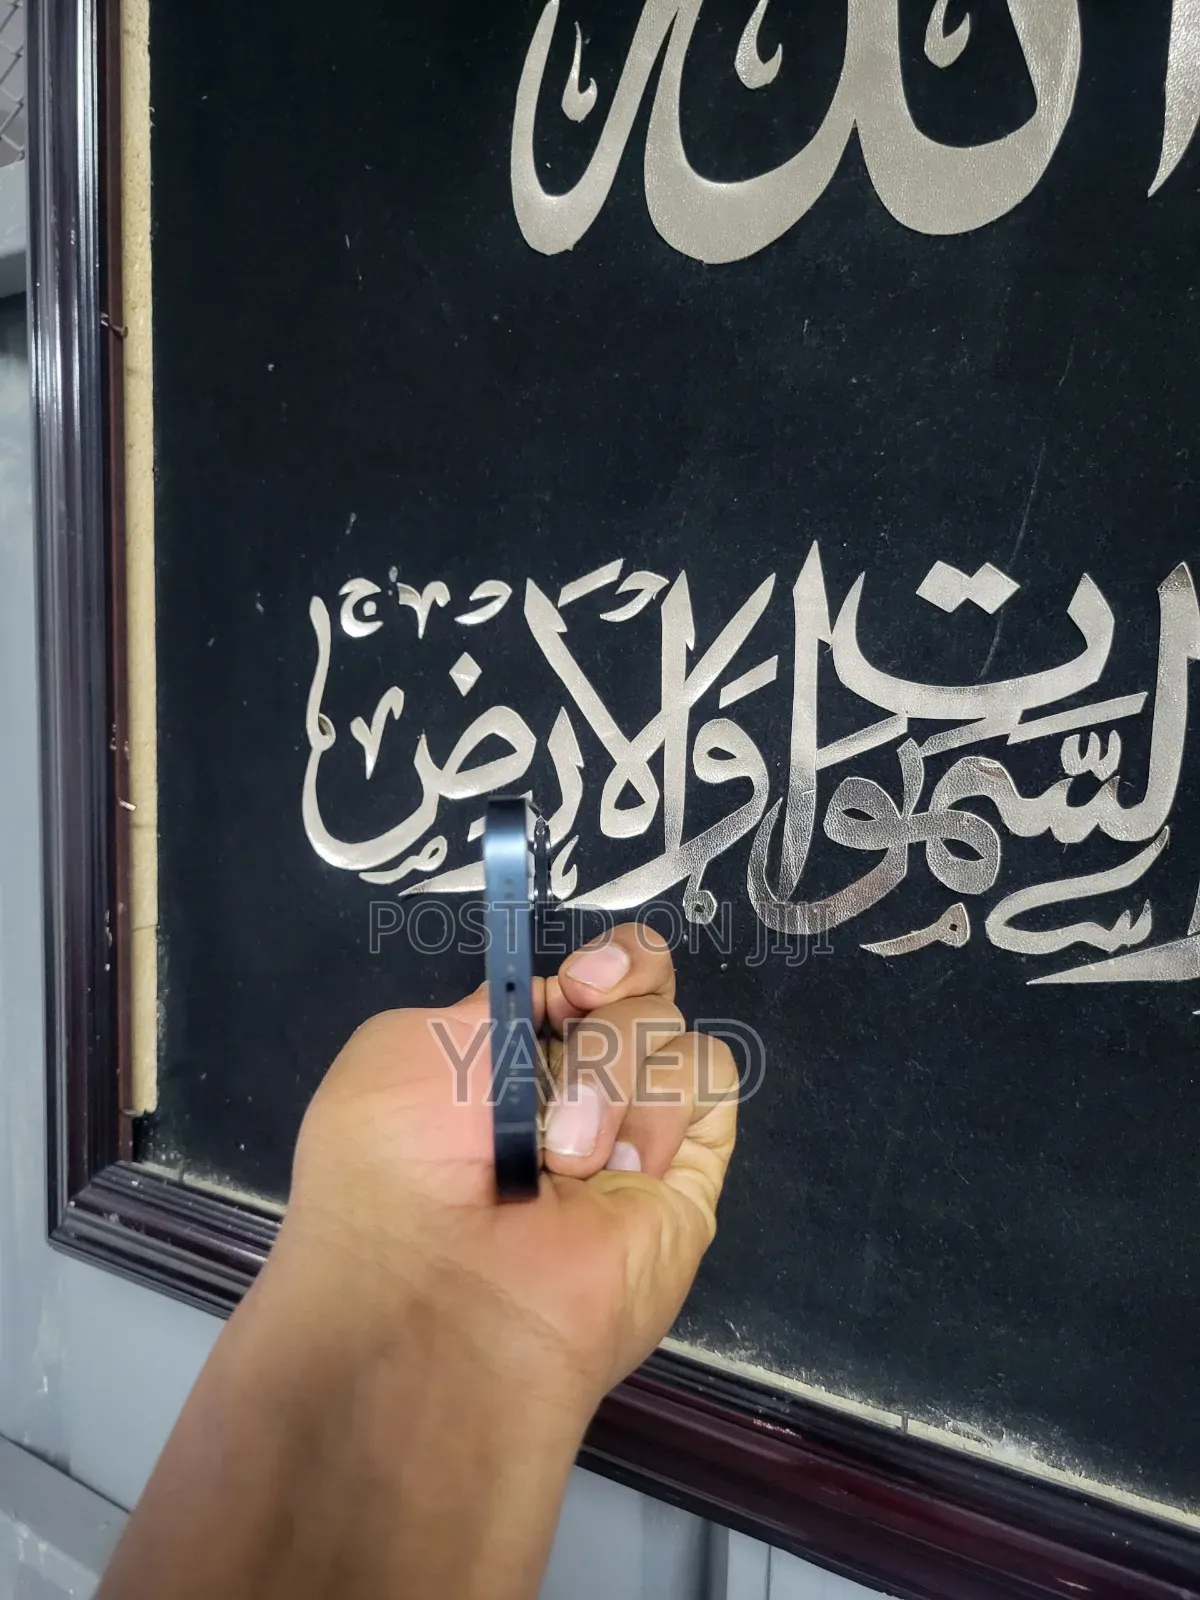 الله
السَّموَاتِ وَالأَرْضِ
POSTED ON JIJI
YARED